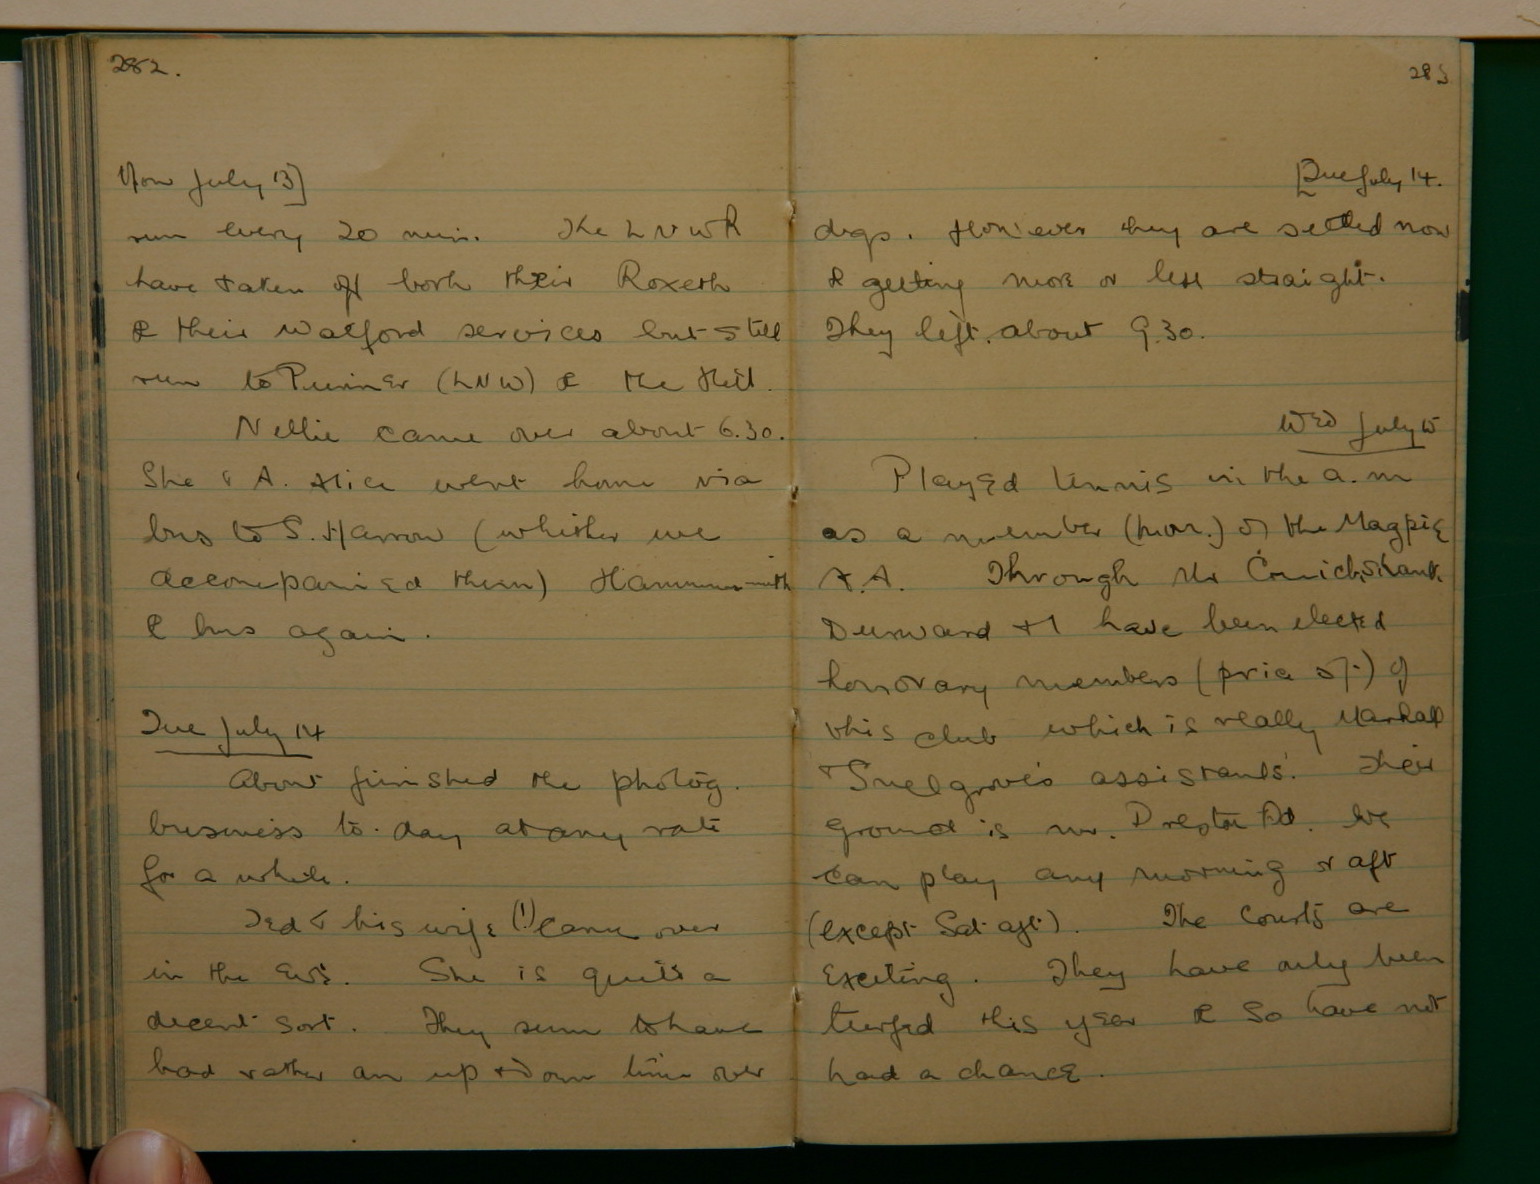 282.
Mon July 13]
run every 20 min. The L N W R
have taken off both their Roxeth
& their Watford services but still
run to Pinner (LNW) & the Hill.
Nellie came over about 6.30.
She & A. Alice went home via
bus to S. Harrow (whither we
accompanied them) Hammersmith
& bus again.
Tue July 14
About finished the photog.
business to-day at any rate
for a while.
Ted & his wife (!) came over
in the evg. She is quite a
decent sort. They seem to have
had rather an up & down time over
283
[Tue July 14.
digs. However they are settled now
& getting more or less straight.
They left about 9.30.
Wed July 15
Played tennis in the a.m
as a member (hon.) of the Magpie
A.A. Through Mr Cruickshank
Durward & I have been elected
honorary members (price 5/-) of
this club which is really Marshall
& Snelgrove's assistants'. Their
ground is nr. Preston Rd. We
can play any morning or aft
(except Sat aft). The courts are
exciting. They have only been
turfed this year & so have not
had a chance.